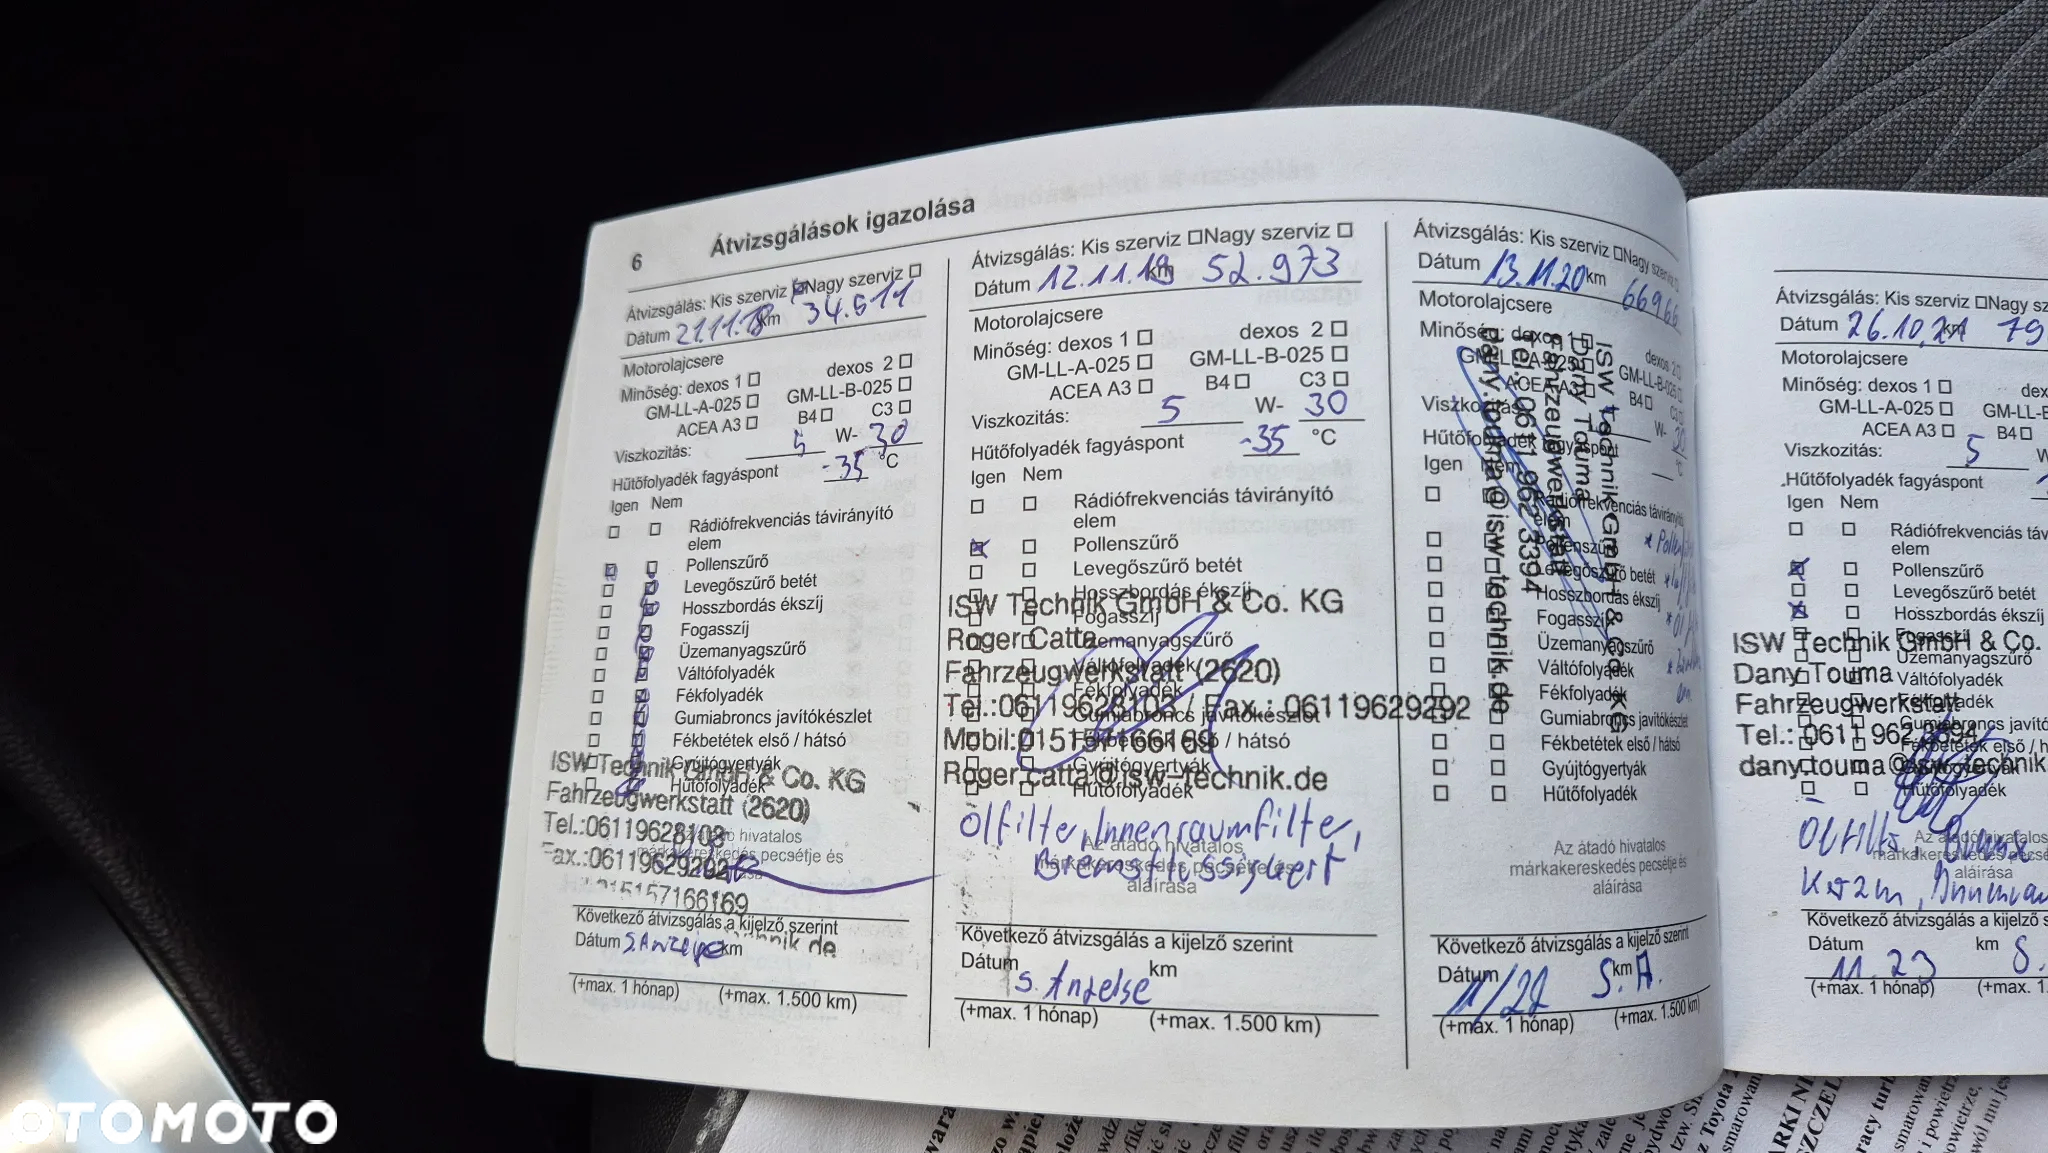 6
Átvizsgálások igazolása
Átvizsgálás: Kis szerviz Nagy szerviz
Dátum 21.11.18 km 34.611
Motorolajcsere
Minőség: dexos 1 dexos 2
GM-LL-A-025 GM-LL-B-025
ACEA A3 B4 C3
Viszkozitás: 5 W- 30
Hűtőfolyadék fagyáspont -35 °C
Igen Nem
Rádiófrekvenciás távirányító
elem
Pollenszűrő
Levegőszűrő betét
Hosszbordás ékszíj
Fogasszíj
Üzemanyagszűrő
Váltófolyadék
Fékfolyadék
Gumiabroncs javítókészlet
Fékbetétek első / hátsó
Gyújtógyertyák
Hűtőfolyadék
ISW Technik GmbH & Co. KG
Fahrzeugwerkstatt (2620)
Tel.:06119628103
Fax.:06119629292
015157166169
Az átadó hivatalos
márkakereskedés pecsétje és
Következő átvizsgálás a kijelző szerint
Dátum S. Anzeige km
(+max. 1 hónap) (+max. 1.500 km)
Átvizsgálás: Kis szerviz Nagy szerviz
Dátum 12.11.19 km 52.973
Motorolajcsere
Minőség: dexos 1 dexos 2
GM-LL-A-025 GM-LL-B-025
ACEA A3 B4 C3
Viszkozitás: 5 W- 30
Hűtőfolyadék fagyáspont -35 °C
Igen Nem
Rádiófrekvenciás távirányító
elem
Pollenszűrő
Levegőszűrő betét
Hosszbordás ékszíj
Fogasszíj
Üzemanyagszűrő
Váltófolyadék
Fékfolyadék
Gumiabroncs javítókészlet
Fékbetétek első / hátsó
Gyújtógyertyák
Hűtőfolyadék
ISW Technik GmbH & Co. KG
Roger Catta
Fahrzeugwerkstatt (2620)
Tel.:06119628103 / Fax.: 06119629292
Mobil:015157166169
Roger.catta@isw-technik.de
Ölfilter, Innenraumfilter,
Az átadó hivatalos
Bremsflüssigkeit
márkakereskedés pecsétje és
aláírása
Következő átvizsgálás a kijelző szerint
Dátum km
S. Anzeige
(+max. 1 hónap) (+max. 1.500 km)
Átvizsgálás: Kis szerviz Nagy szerviz
Dátum 13.11.20 km 66966
Motorolajcsere
Minőség: dexos 1 dexos 2
GM-LL-A-025 GM-LL-B-025
ACEA A3 B4 C3
Viszkozitás: W- 30
Hűtőfolyadék fagyáspont °C
Igen Nem
Rádiófrekvenciás távirányító
elem
Pollenszűrő
Levegőszűrő betét
Hosszbordás ékszíj
Fogasszíj
Üzemanyagszűrő
Váltófolyadék
Fékfolyadék
Gumiabroncs javítókészlet
Fékbetétek első / hátsó
Gyújtógyertyák
Hűtőfolyadék
ISW Technik GmbH & Co. KG
Dany Touma
Fahrzeugwerkstatt
Tel.: 0611 962 3394
dany.touma@isw-technik.de
Az átadó hivatalos
márkakereskedés pecsétje és
aláírása
Következő átvizsgálás a kijelző szerint
Dátum km
11/22 S.A.
(+max. 1 hónap) (+max. 1.500 km)
Átvizsgálás: Kis szerviz Nagy sz
Dátum 26.10.21 km 79
Motorolajcsere
Minőség: dexos 1 dex
GM-LL-A-025 GM-LL-B
ACEA A3 B4
Viszkozitás: 5 W
Hűtőfolyadék fagyáspont
Igen Nem
Rádiófrekvenciás táv
elem
Pollenszűrő
Levegőszűrő betét
Hosszbordás ékszíj
Fogasszíj
Üzemanyagszűrő
Váltófolyadék
Fékfolyadék
Gumiabroncs javító
Fékbetétek első / h
Gyújtógyertyák
Hűtőfolyadék
ISW Technik GmbH & Co.
Dany Touma
Fahrzeugwerkstatt
Tel.: 0611 962 3394
dany.touma@isw-technik
Az átadó hivatalos
márkakereskedés pecsé
aláírása
Következő átvizsgálás a kijelző sz
Dátum km
11.23 S.
(+max. 1 hónap) (+max. 1.
OTOMOTO